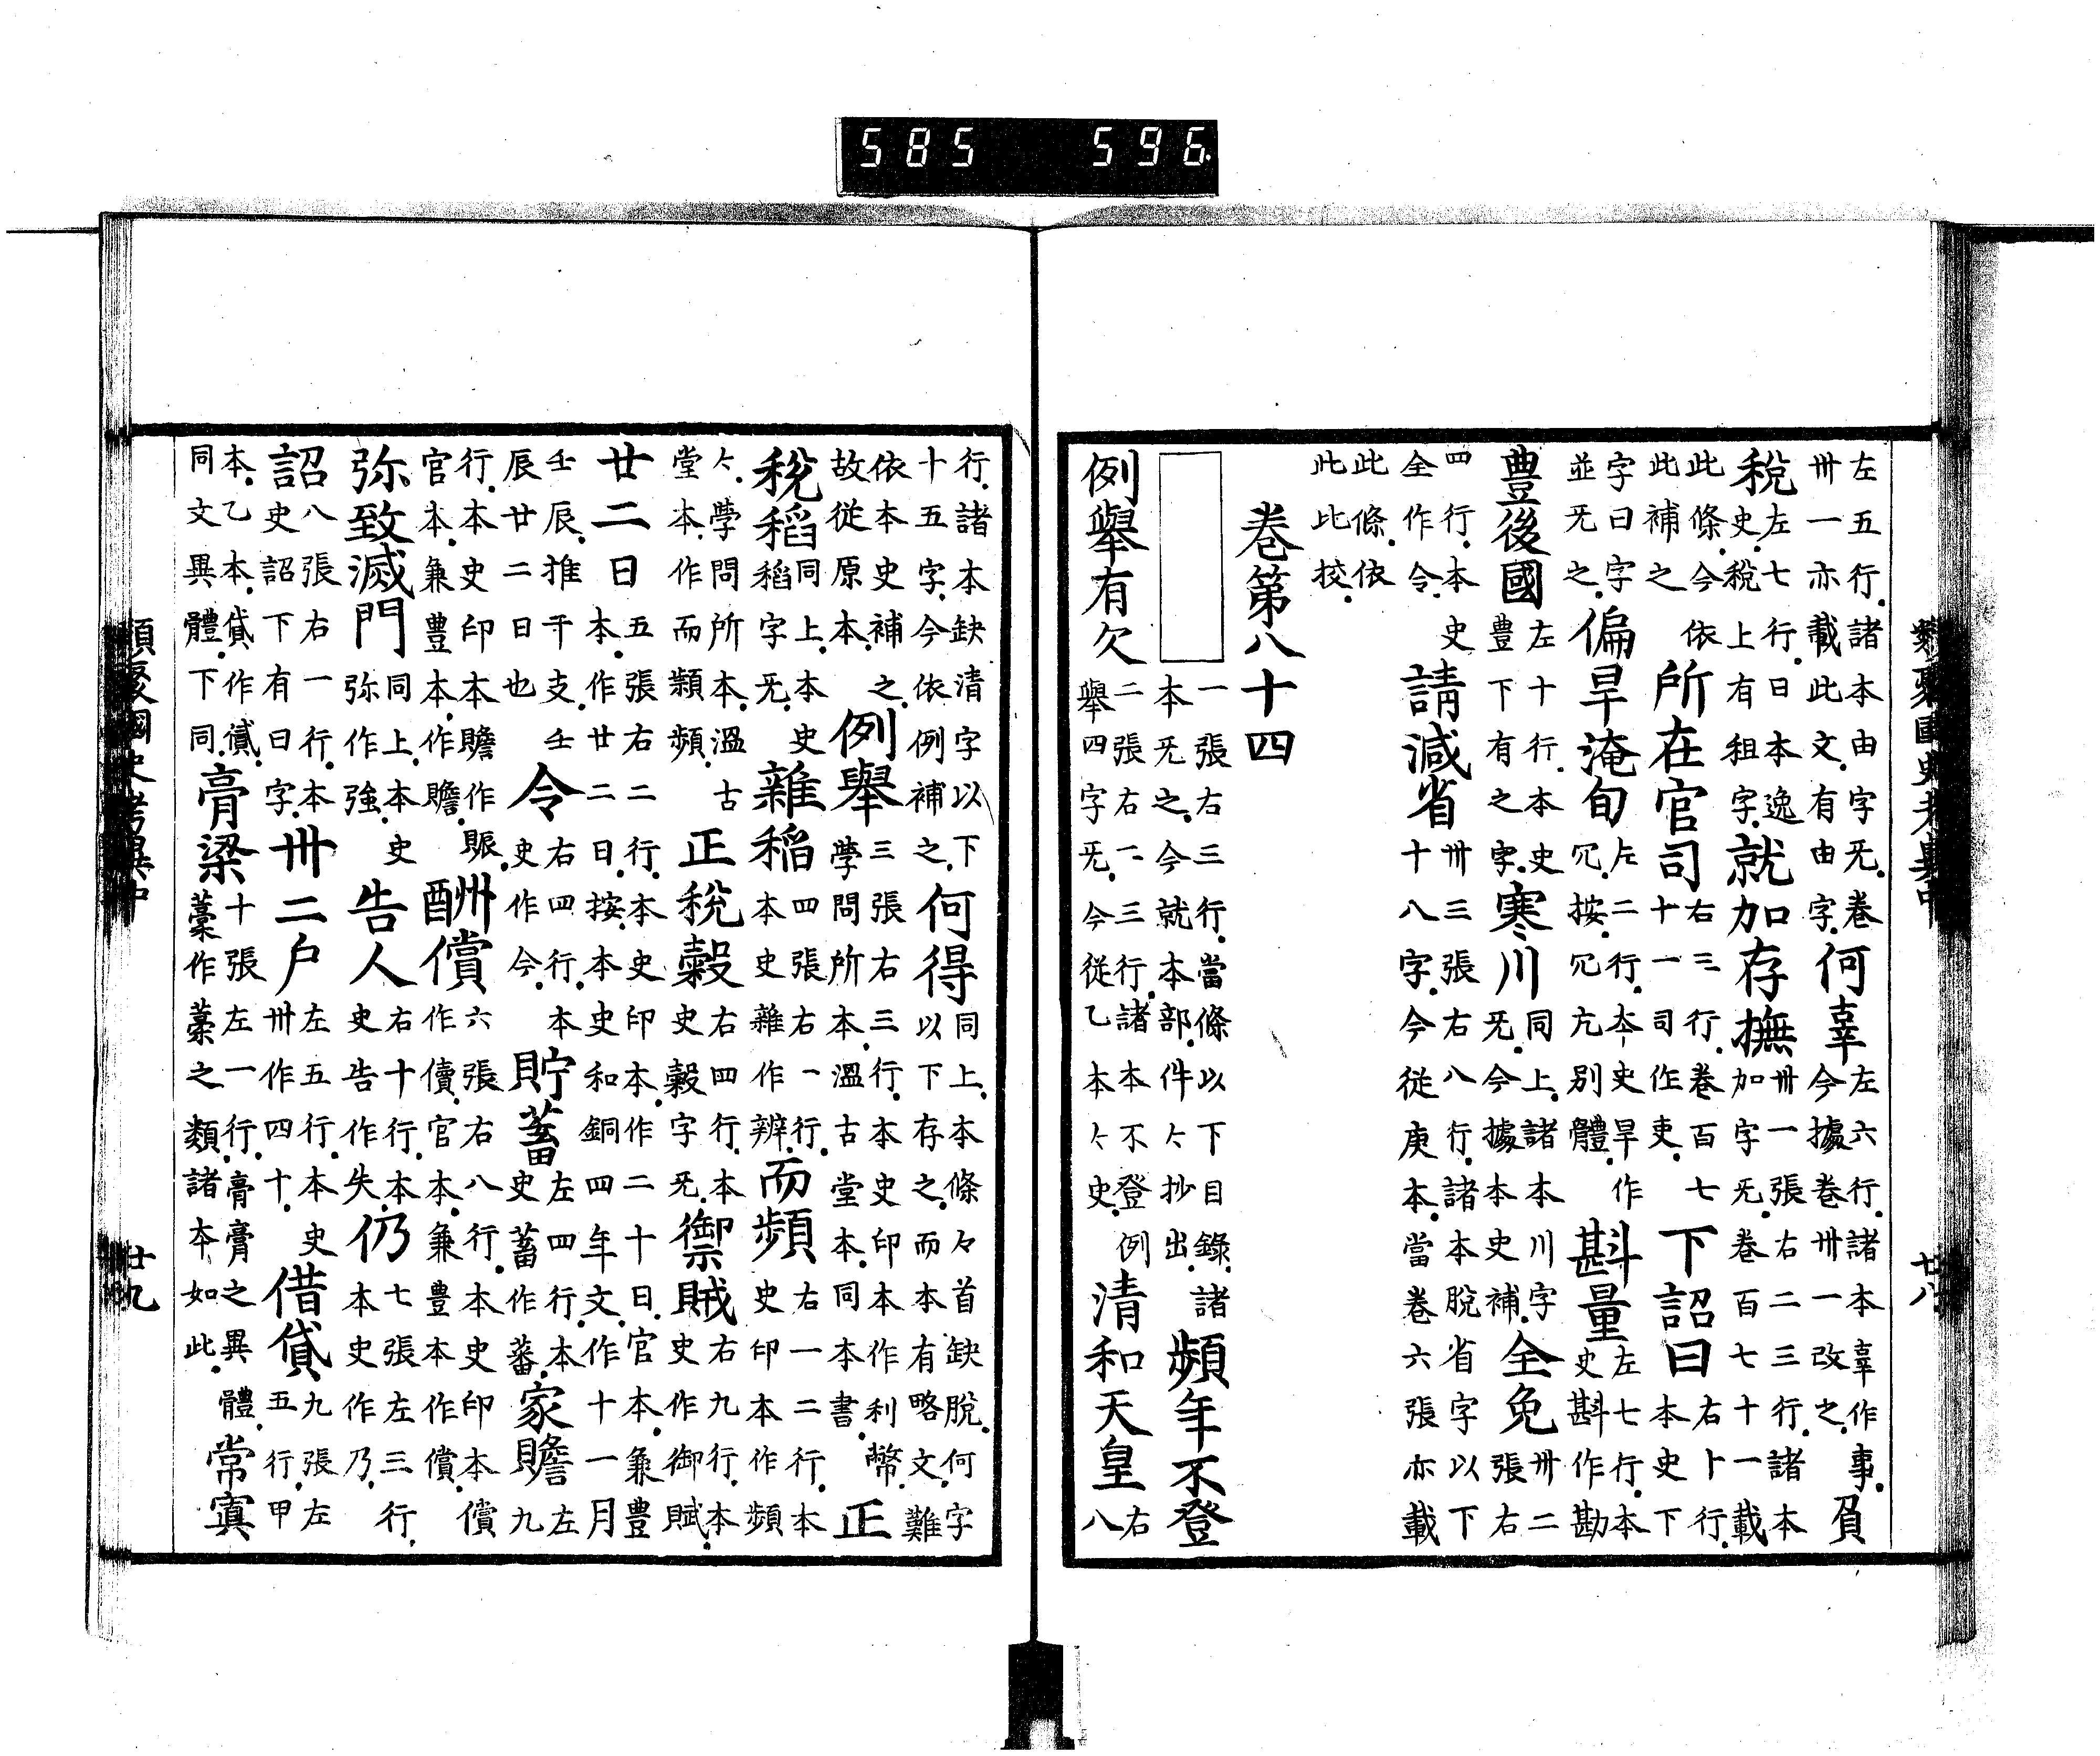 類聚國史考異中 廿八
左五行諸本由字旡卷
卅一亦載此文有由字
何辜
左六行諸本辜作事
今據卷卅一改之
負
税
左七行日本逸
史税上有租字
就加存撫
卅一張右二三行諸本
加字旡卷百七十一載
此條今依
此補之
所在官司
右三行卷百七
十一司作吏
下詔曰
右卜行
本史下
字曰字
並旡之
偏旱淹旬
左二行本史旱作
冗按冗亢別體
斟量
左七行本
史斟作勘
豊後國
左十行本史
豊下有之字
寒川
同上諸本川字
旡今據本史補
全免
卅二
張右
四行本史
全作令
請減省
卅三張右八行諸本脱省字以下
十八字今從庚本當卷六張亦載
此條依
此比挍
卷第八十四
一張右三行當條以下目錄諸
本旡之今就本部件々抄出
頻年不登
例舉有欠
二張右一三行諸本不登例
舉四字旡今從乙本々史
清和天皇
右
八
行諸本缺清字以下
十五字今依例補之
何得
同上本條々首缺脱何字
以下存之而本有略文難
依本史補之
故從原本
例舉
三張右三行本史印本作利幣
學問所本溫古堂本同本書
正
税稻
同上本史
稻字旡
雜稲
四張右一行
本史雜作辨
而頻
右一二行本
史印本作頻
々學問所本溫古
堂本作而類頻
正税穀
右四行本
史穀字旡
禦賊
右九行本
史作御賦
廿二日
五張右二行本史印本作二十日官本兼豊
本作廿二日按本史和銅四年文作十一月
壬辰推干支壬
辰廿二日也
令
右四行本
史作今
貯蓄
左四行本
史蓄作蕃
家贍
左
九
行本史印本贍作賑
官本兼豊本作贍
酬償
六張右八行本史印本償
作儥官本兼豊本作償
弥致滅門
同上本史
弥作強
告人
右十行本
史告作失
仍
七張左三行
本史作乃
詔
八張右一行本
史詔下有曰字
卅二戸
左五行本史
卅作四十
借貸
九張左
五行甲
本乙本貸作貣
同文異體下同
膏粱
十張左一行膏膏之異體
藁作藁之類諸本如此
常寘
類聚國史考異中 廿九
585 596